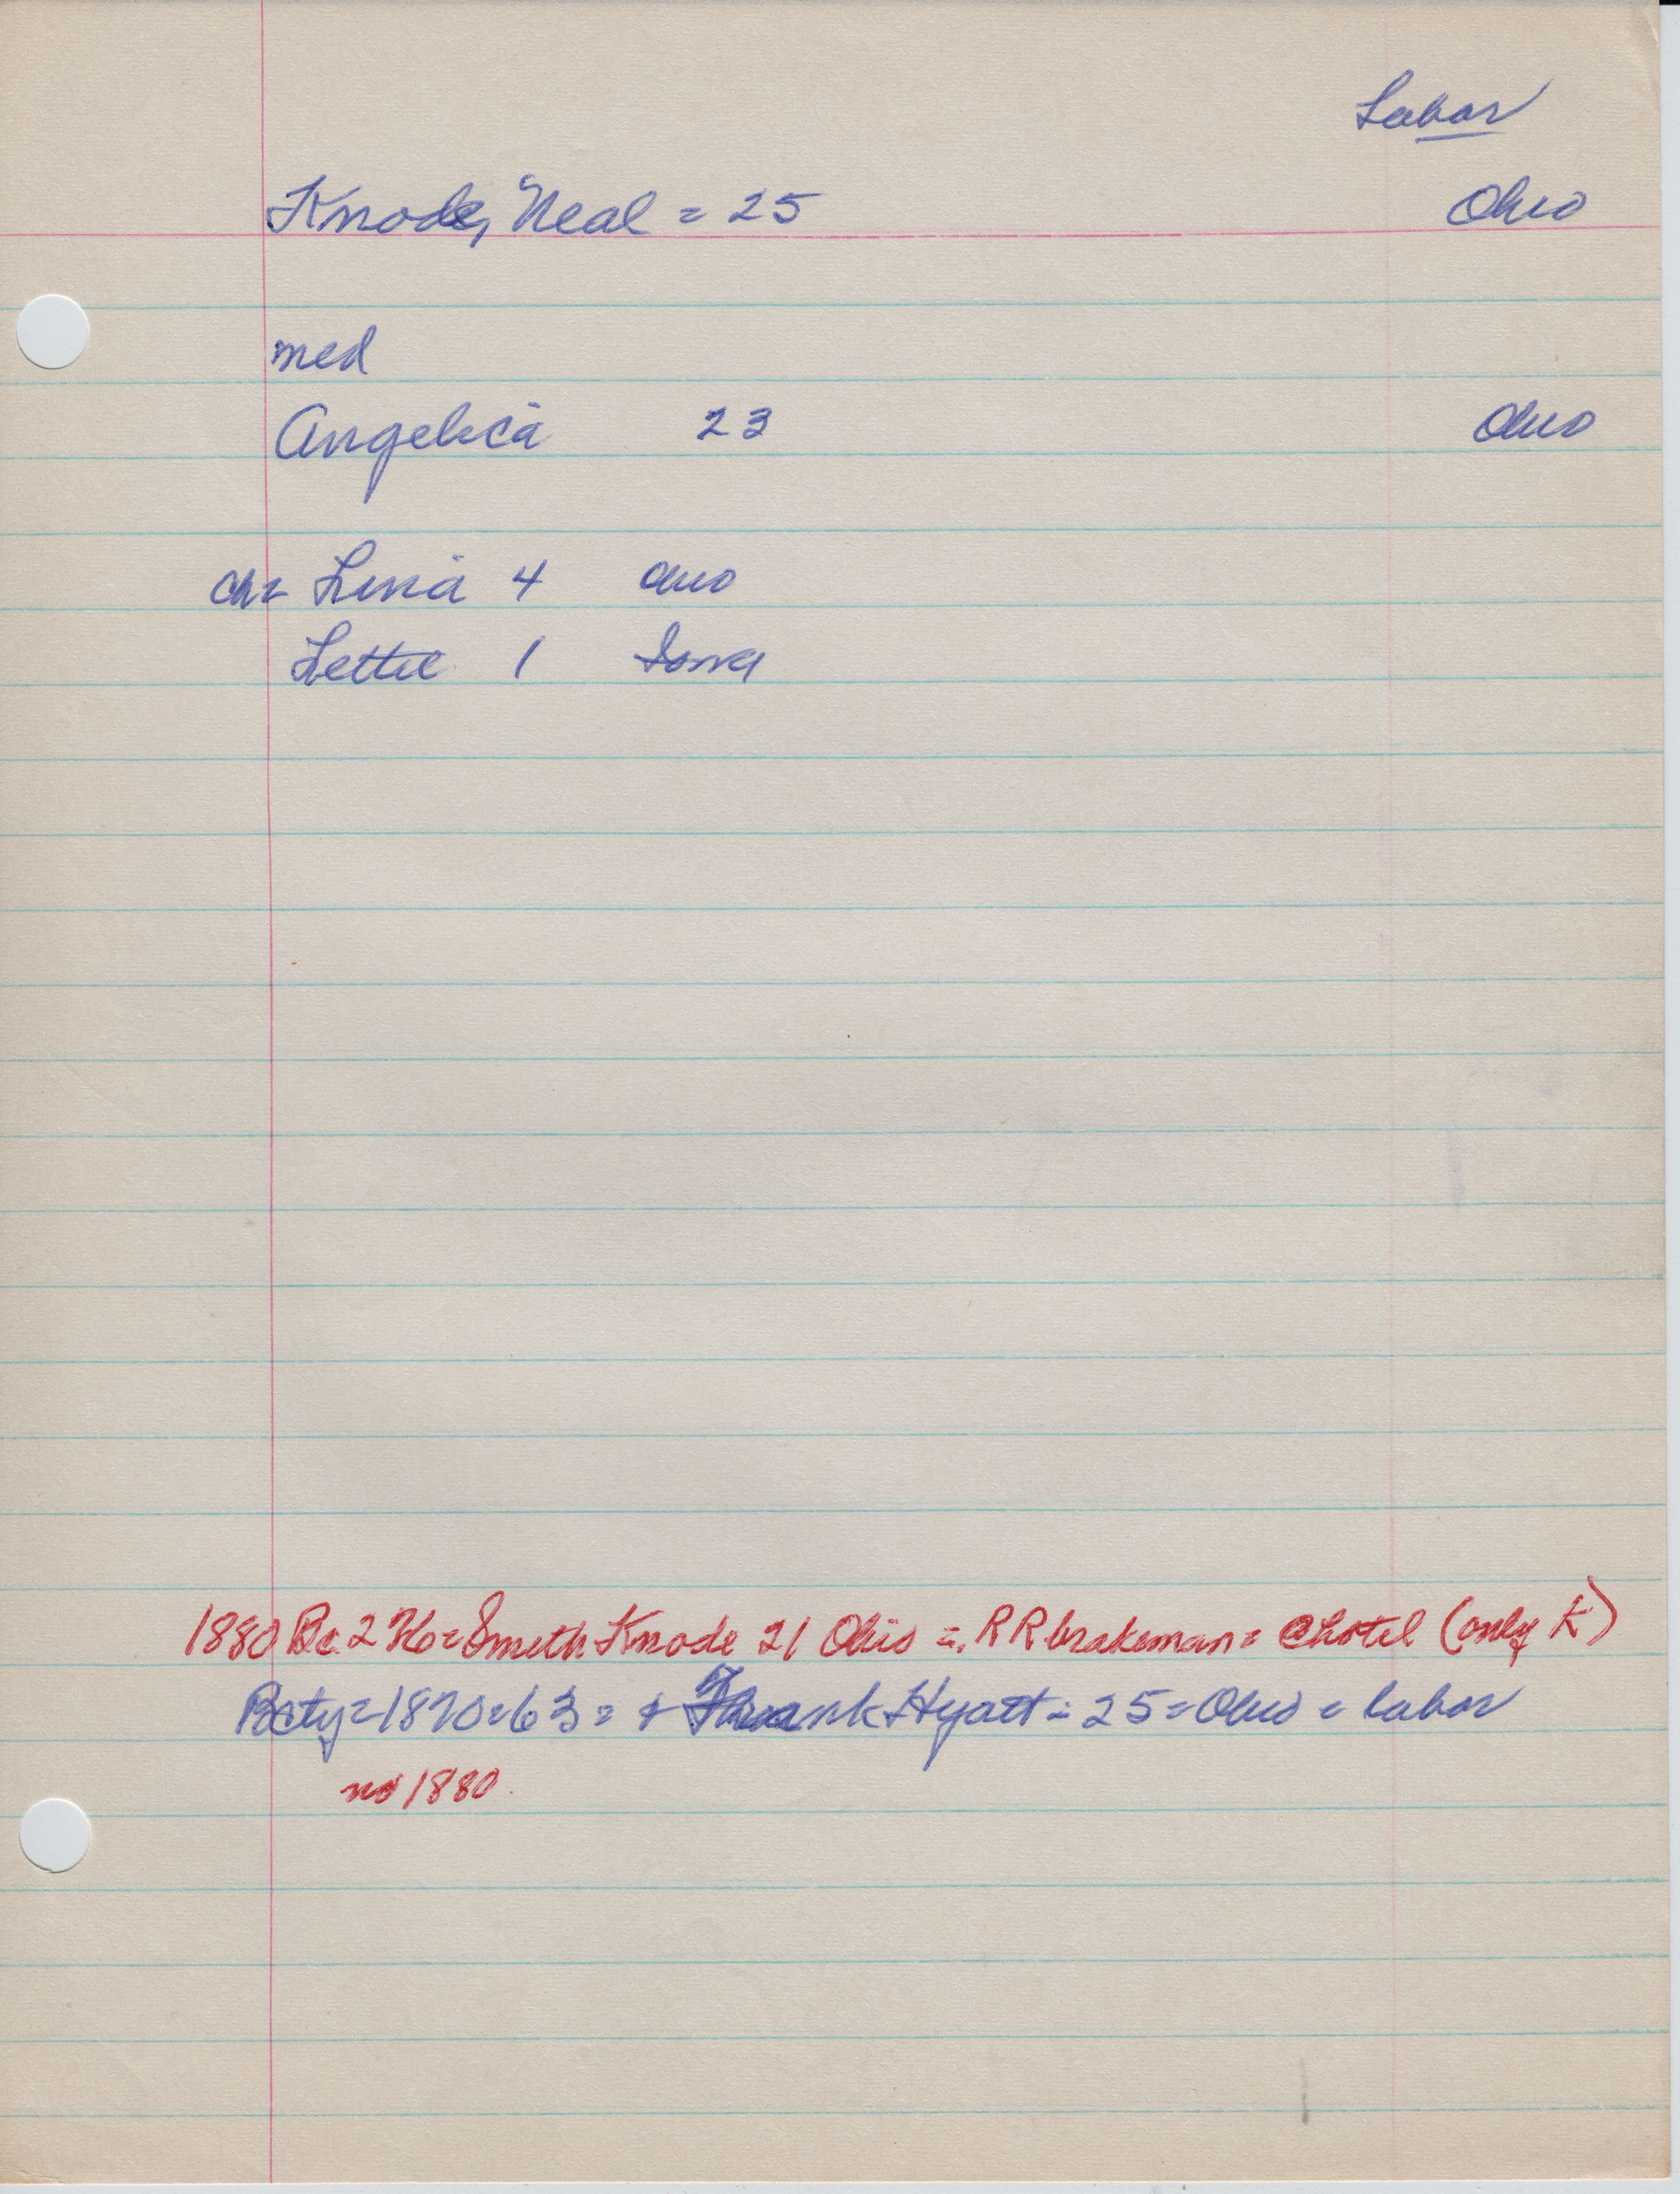 Labor
Knode, Neal = 25 Ohio
med
Angelica 23 Ohio
ch= Lina 4 Ohio
Lettie 1 Iowa
1880 Bc 2 = Smith Knode 21 Ohio = RR brakeman = @ hotel (only K)
Bcty = 1870 = 63 = + Frank Hyatt = 25 = Ohio = labor
no 1880